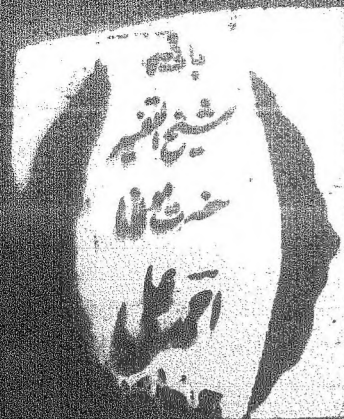 بانی
شیخ التفسیر
حضرت مولانا
احمد علی